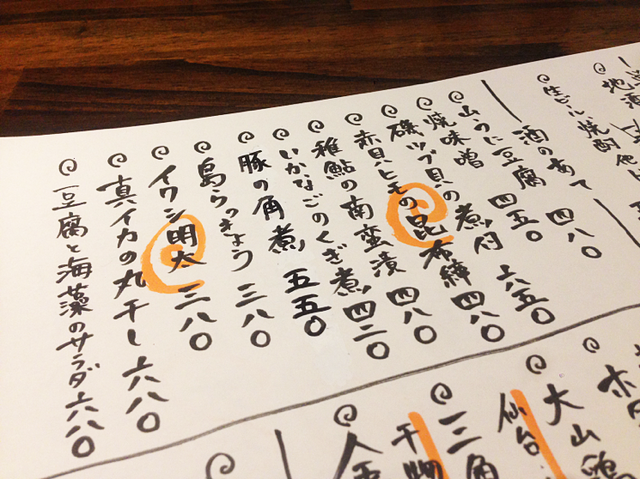 生ビール 焼酎
酒のあて 四八〇
山うに豆腐 四五〇
焼味噌
磯ツブ貝の煮付 六五〇
赤貝ヒモの昆布締 四八〇
稚鮎の南蛮漬 四八〇
いかなごのくぎ煮 四二〇
豚の角煮 五五〇
島らっきょう 三八〇
イワシ明太 三八〇
真イカの丸干し 六八〇
豆腐と海藻のサラダ 六八〇
大山鶏
仙台
三角
干物